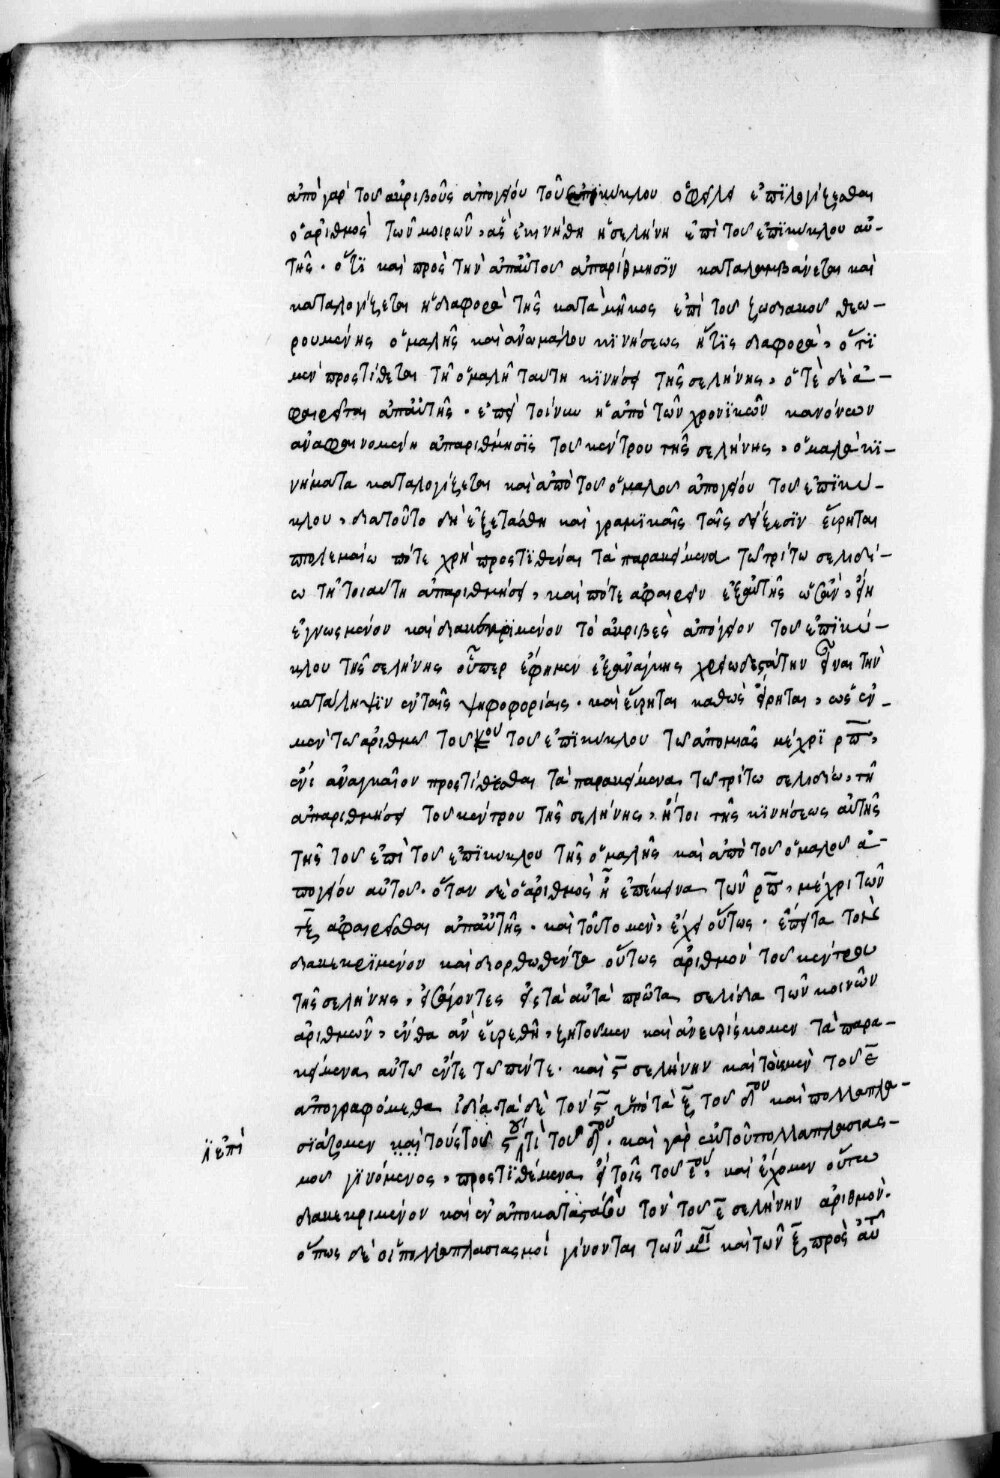 ἀπὸ γὰρ τοῦ ἀκριβοῦς ἀπογείου τοῦ ἐπικύκλου ὀφείλει ἐπιλογίζεσθαι
ὁ ἀριθμὸς τῶν μοιρῶν, ἃς ἐκινήθη ἡ σελήνη ἐπὶ τοῦ ἐπικύκλου αὐ-
τῆς. ὅτι καὶ πρὸς τὴν ἀπ' αὐτοῦ ἀπαρίθμησιν καταλαμβάνεται καὶ
καταλογίζεται ἡ διαφορὰ τῆς κατὰ μῆκος ἐπὶ τοῦ ζωδιακοῦ θεω-
ρουμένης ὁμαλῆς καὶ ἀνωμάλου κινήσεως ἥτις διαφορὰ, ὅτι
μὲν προστίθεται τῇ ὁμαλῇ ταύτῃ κινήσει τῆς σελήνης, ὁτὲ δὲ ἀ-
φαιρεῖται ἀπ' αὐτῆς. ἐπεὶ τοίνυν ἡ ἀπὸ τῶν χρονικῶν κανόνων
ἀναφαινομένη ἀπαρίθμησις τοῦ κέντρου τῆς σελήνης, ὁμαλὰ κι-
νήματα καταλογίζεται καὶ ἀπὸ τοῦ ὁμαλοῦ ἀπογείου τοῦ ἐπικύ-
κλου, διὰ τοῦτο δὴ ἐξετάσθη καὶ γραμικαῖς ταῖς δείξεσιν εἴρηται
πτολεμαίω πότε χρὴ προστιθέναι τὰ παρακείμενα τῶ τρίτω σελιδί-
ω τῇ τοιαύτη ἀπαριθμήσει, καὶ πότε ἀφαιρεῖν ἐξ αὐτῆς
ἐγνωσμένον καὶ διακεκριμένον τὸ ἀκριβὲς ἀπόγειον τοῦ ἐπικύ-
κλου τῆς σελήνης οὗπερ ἔφημεν ἐξ ἀνάγκης χρειωδεστάτην εἶναι τὴν
κατάληψιν ἐν ταῖς ψηφοφορίαις. καὶ εἴρηται καθὼς εἴρηται, ὡς ἐν
μὲν τῶ ἀριθμῶ τοῦ κου τοῦ ἐπικύκλου τῶ ἀπὸ μιᾶς μέχρι ρπ,
ἔνι ἀναγκαῖον προστίθεσθαι τὰ παρακείμενα τῶ τρίτω σελιδίω, τῇ
ἀπαριθμήσει τοῦ κέντρου τῆς σελήνης, ἤτοι τῆς κινήσεως αὐτῆς
τῆς τοῦ ἐπὶ τοῦ ἐπικύκλου τῆς ὁμαλῆς καὶ ἀπὸ τοῦ ὁμαλοῦ ἀ-
πογείου αὐτοῦ. ὅταν δὲ ὁ ἀριθμὸς ἦ ἐπέκεινα τῶν ρπ, μέχρι τῶν
τξ ἀφαιρεῖσθαι ἀπ' αὐτῆς. καὶ τοῦτο μὲν, ἔχει οὕτως. ἔπειτα τὸν
διακεκριμένον καὶ διορθωθέντα οὕτως ἀριθμὸν τοῦ κέντρου
τῆς σελήνης, εἰσάγοντες εἰς τὰ αὐτὰ πρῶτα σελίδια τῶν κοινῶν
ἀριθμῶν, ἔνθα ἂν εὑρεθῆ, ζητοῦμεν καὶ ἀνευρίσκομεν τὰ παρα-
κείμενα αὐτῶ ἔν τε τῶ πέντε. καὶ ς σελήνην καὶ τὸ μὲν τοῦ ε
ἀπογραφόμεθα ἰδία τὰ δὲ τοῦ ς ὑπὸ τὰ ξ τοῦ δου καὶ πολλαπλα-
σιάζομεν καὶ τοὺς τοῦ ς ἐπὶ τοῦ δου. καὶ γὰρ ἐκ τοῦ πολλαπλασιασ-
μοῦ γινόμενος, προστιθέμενα τοῖς τοῦ εου, καὶ ἔχομεν οὕτω
διακεκριμένον καὶ ἐν ἀποκαταστάσει τὸν τοῦ ε σελήνην ἀριθμόν.
ὅπως δὲ οἱ πολλαπλασιασμοὶ γίνονται τῶν μοι καὶ τῶν ξ πρὸς αὐτ
ἐπὶ